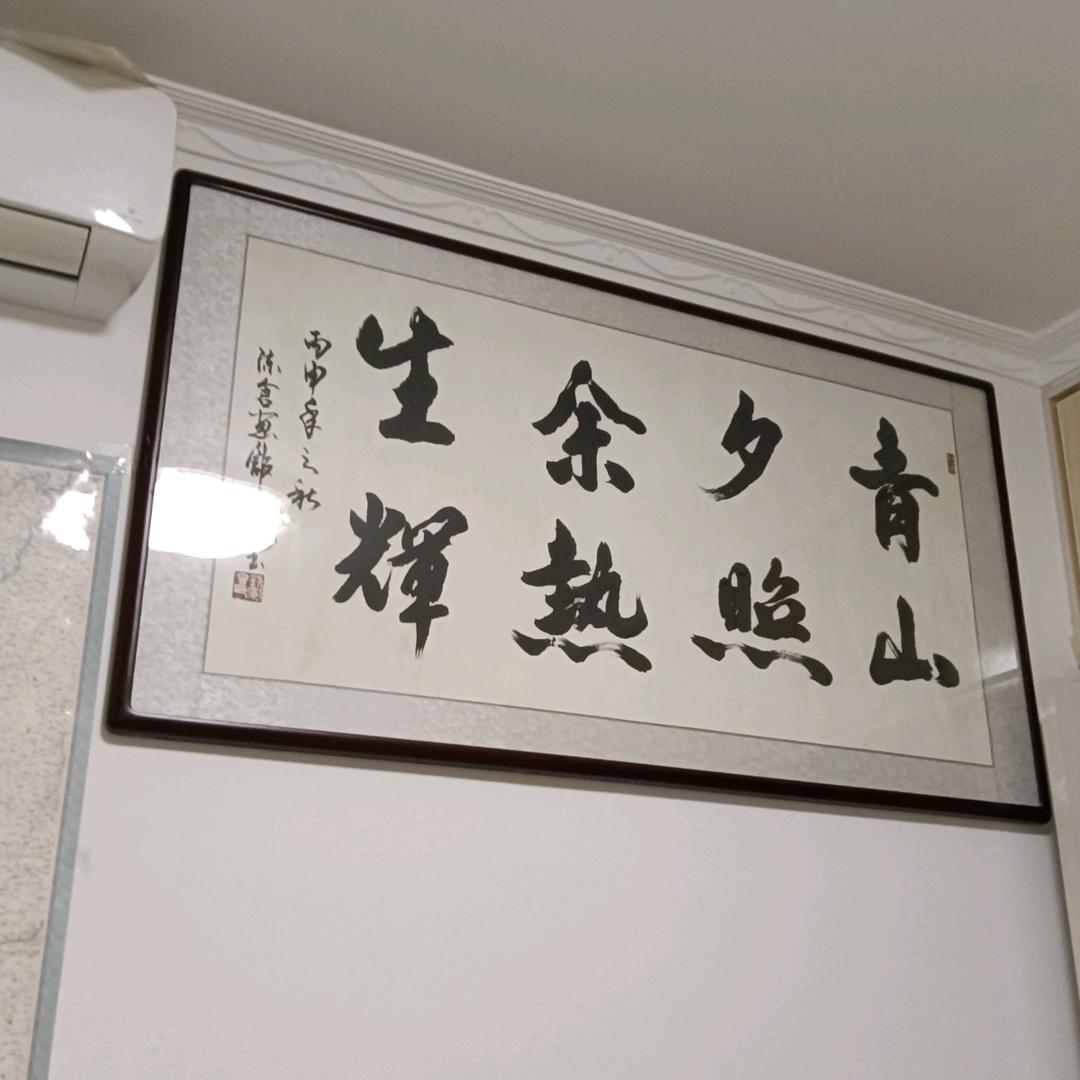 青山
夕照
余熱
生輝
丙申年之秋